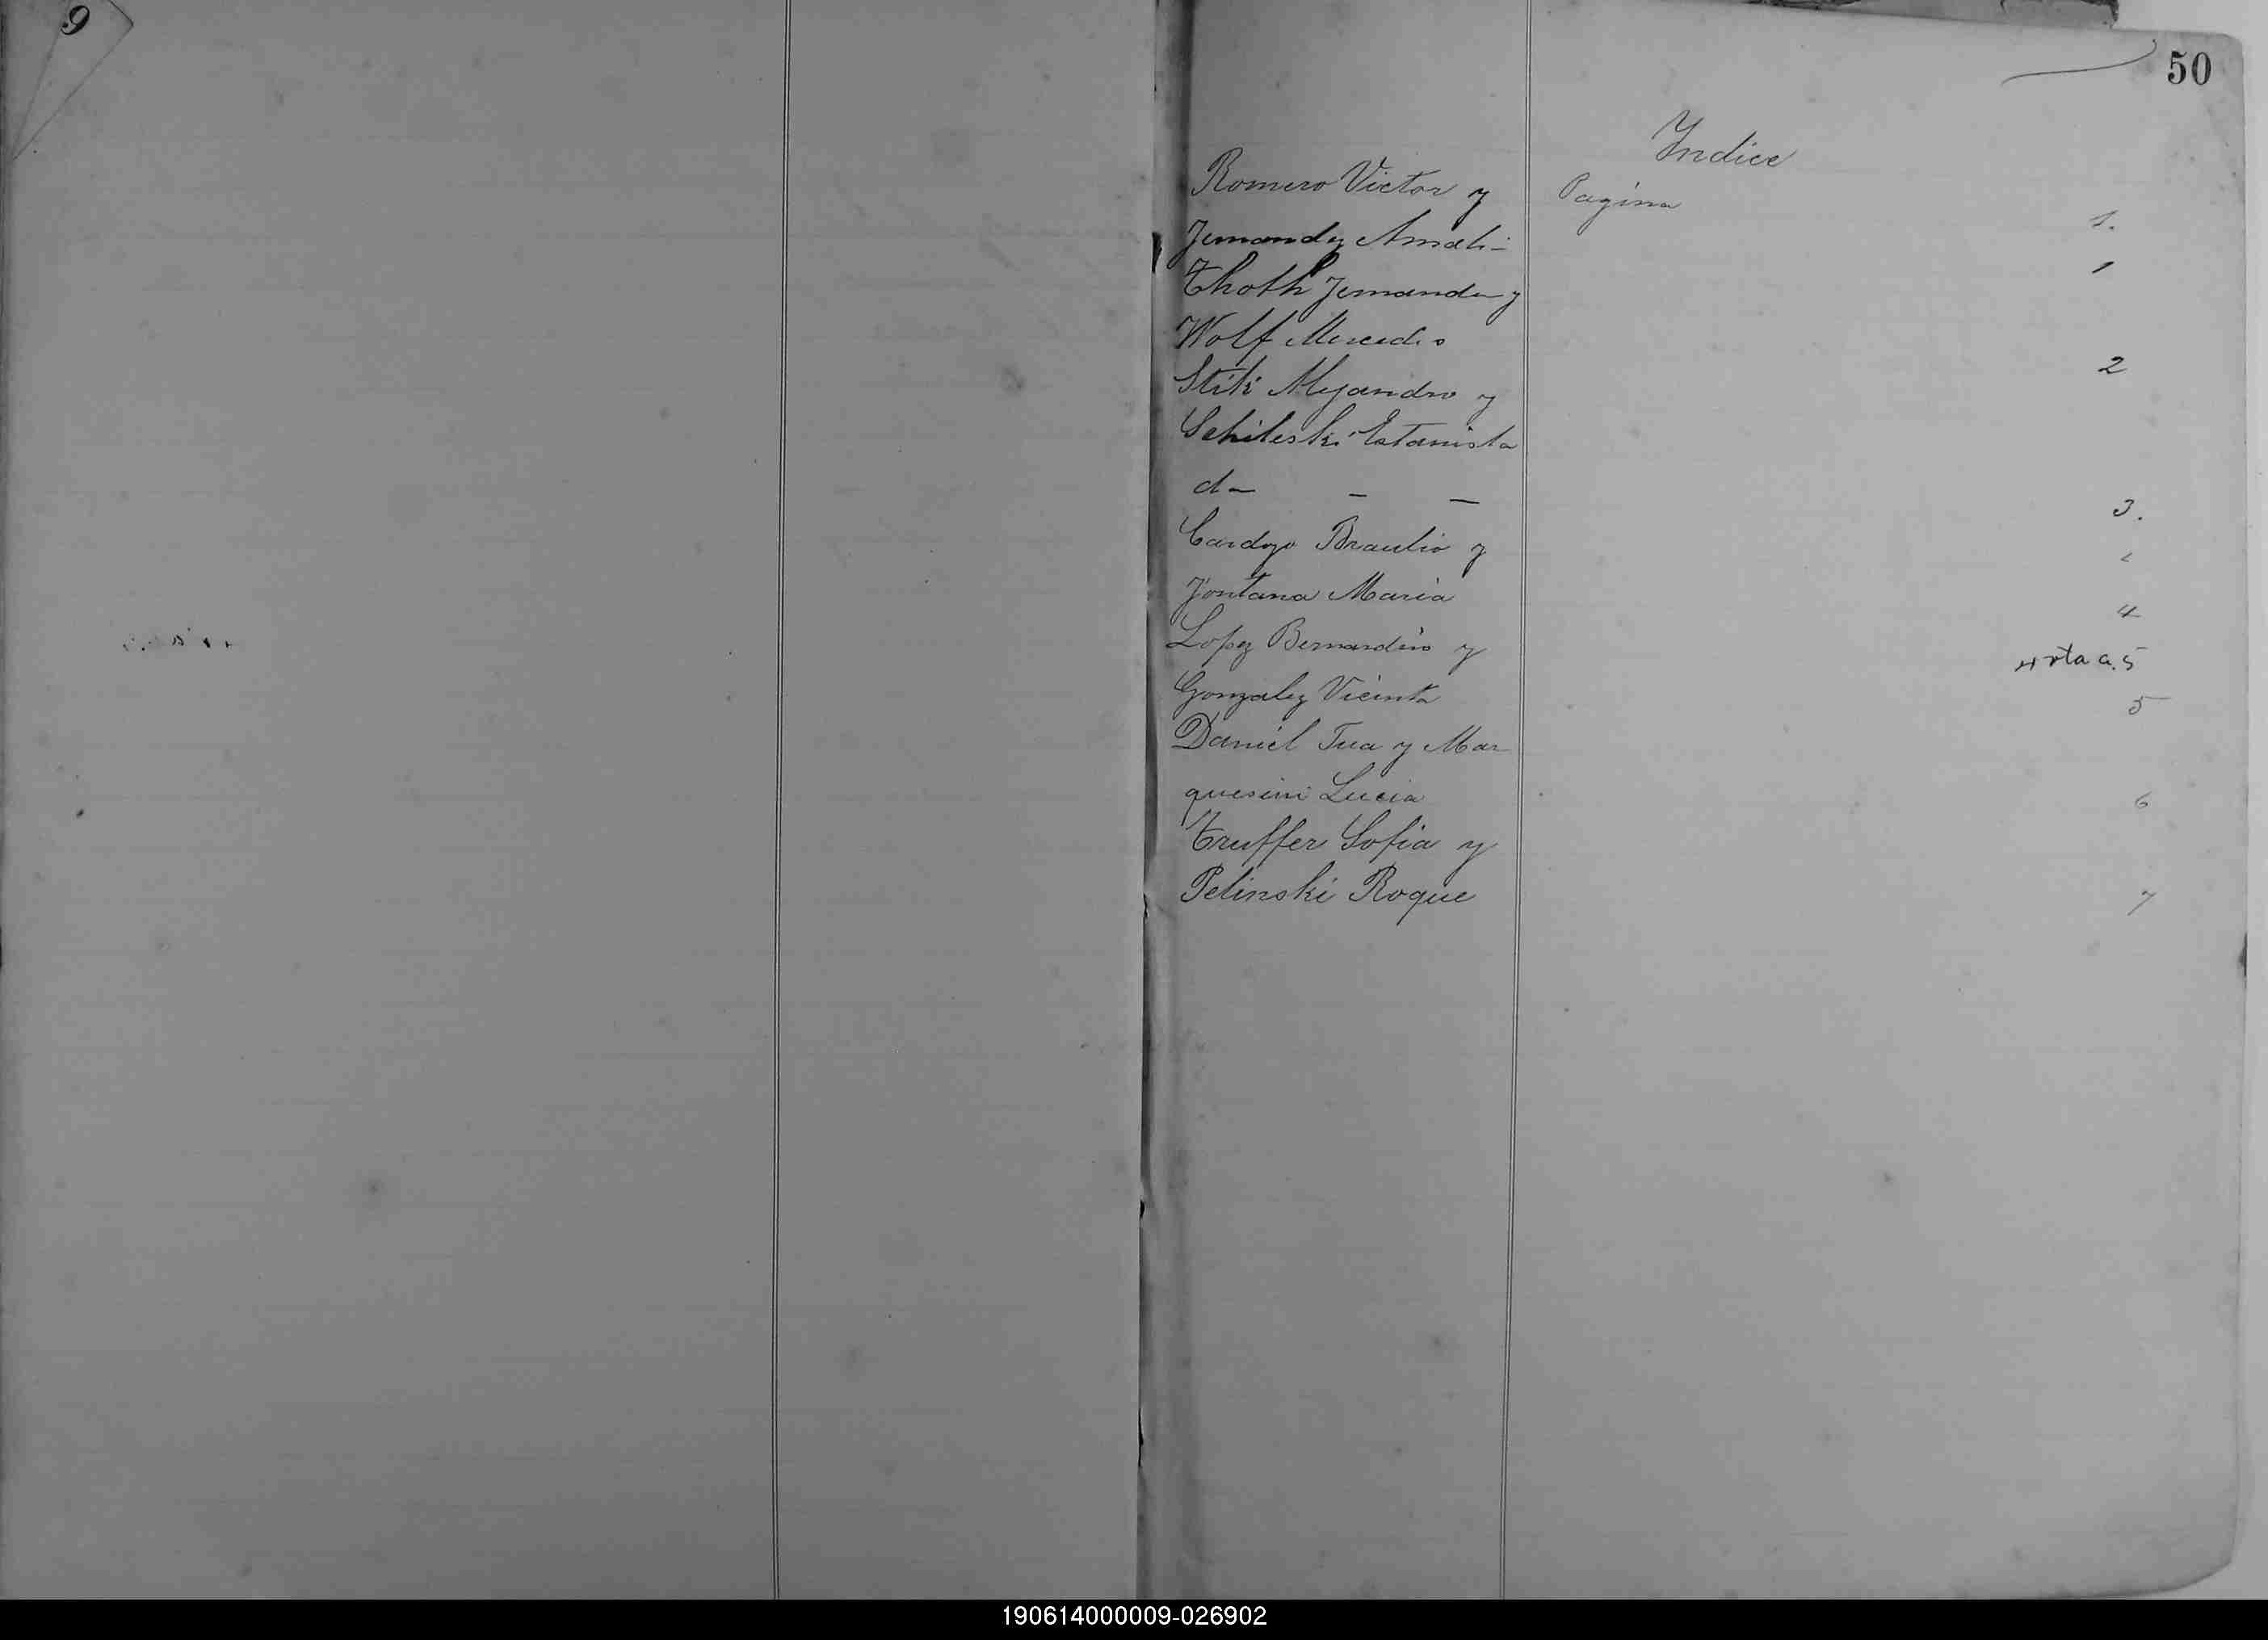 9
50
Indice
Romero Victor y
Pagina
Fernandez Amali-
1.
Thoth Fernando y
1
Wolf Mercedes
Stiki Alejandro y
2
Schileski Estanisla
da — —
3.
Cardozo Braulio y
Fontana Maria
4
Lopez Bernardino y
4 vta a. 5
Gonzalez Vicenta
5
Daniel Tua y Mar
quesini Lucia
6
Truffer Sofia y
Pelinski Roque
7
190614000009-026902